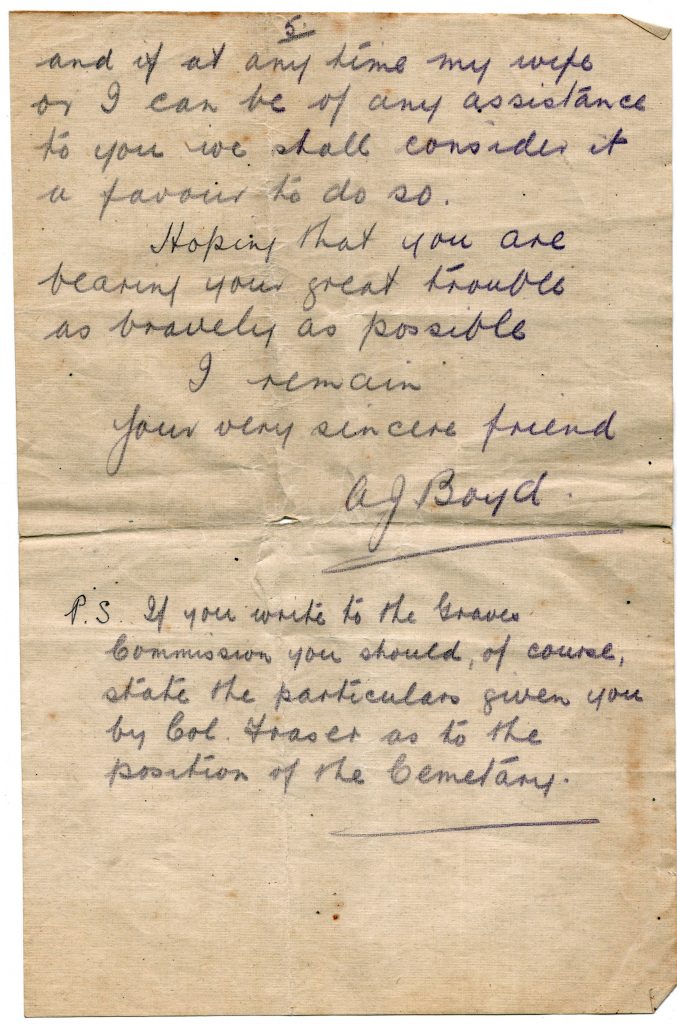 5.
and if at any time my wife
or I can be of any assistance
to you we shall consider it
a favour to do so.
Hoping that you are
bearing your great trouble
as bravely as possible
I remain
Your very sincere friend
A J Boyd.
P.S. If you write to the Graves
Commission you should, of course,
state the particulars given you
by Col. Fraser as to the
position of the Cemetary.